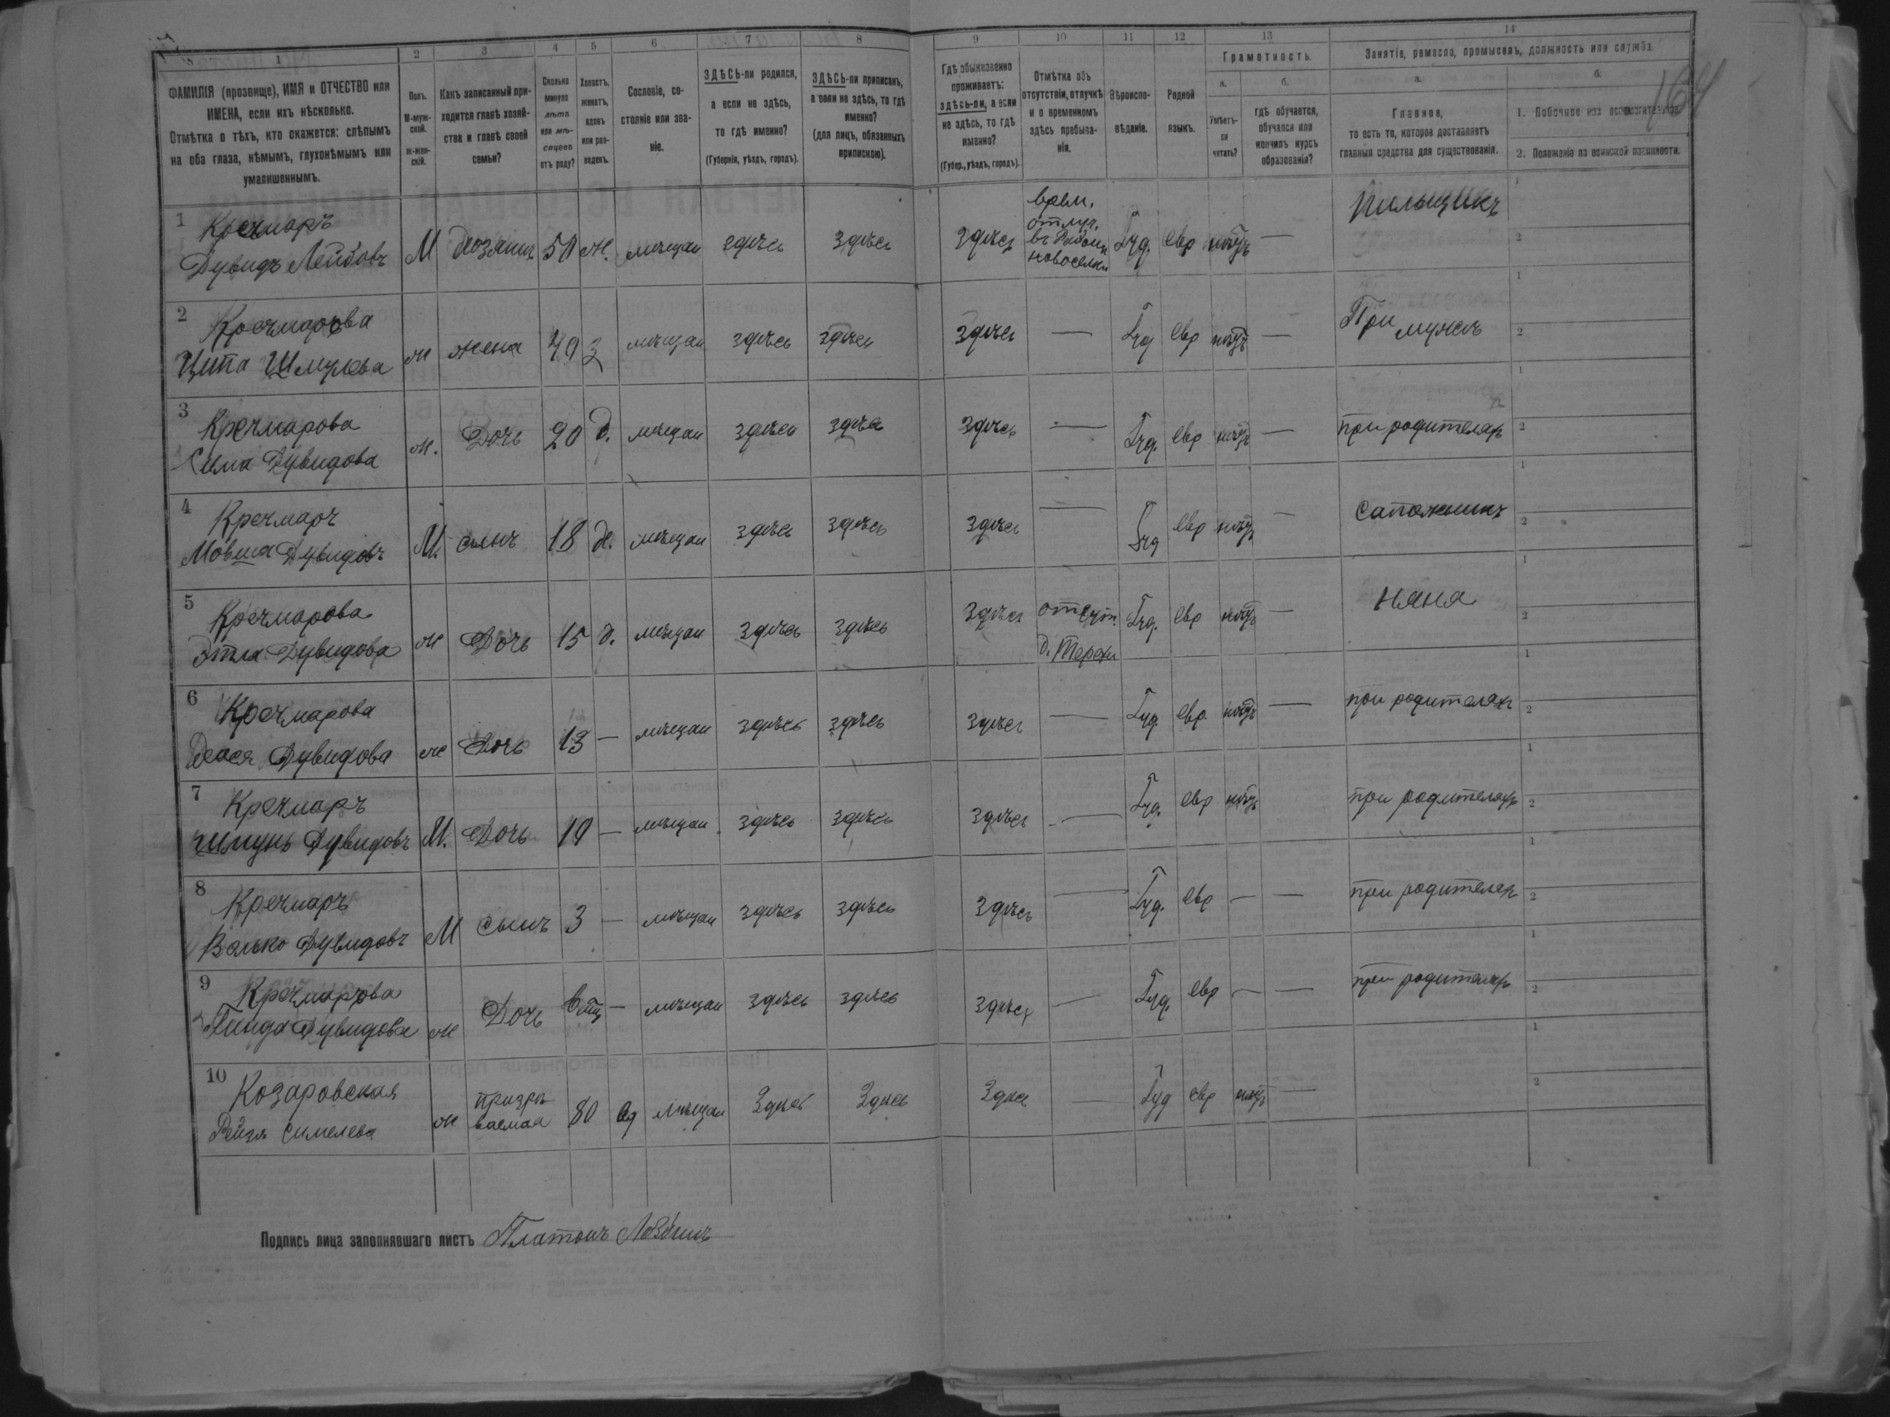 1 2 3 4 5 6 7 8 9 10 11 12 13 14
ФАМИЛІЯ (прозвище), ИМЯ и ОТЧЕСТВО или
ИМЕНА, если ихъ нѣсколько.
Отмѣтка о тѣхъ, кто окажется: слѣпымъ
на оба глаза, нѣмымъ, глухонѣмымъ или
умалишеннымъ.
Полъ.
М-муж-
ской.
ж-жен-
скій.
Какъ записанный при-
ходится главѣ хозяй-
ства и главѣ своей
семьи?
Сколько
минуло
лѣтъ
или мѣ-
сяцевъ
отъ роду?
Холостъ,
женатъ,
вдовъ
или раз-
веденъ.
Сословіе, со-
стояніе или зва-
ніе.
ЗДѢСЬ-ли родился,
а если не здѣсь,
то гдѣ именно?
(Губернія, уѣздъ, городъ).
ЗДѢСЬ-ли приписанъ,
а если не здѣсь, то гдѣ
именно?
(для лицъ, обязанныхъ
припискою).
Гдѣ обыкновенно
проживаетъ:
здѣсь-ли, а если
не здѣсь, то гдѣ
именно?
(Губер., уѣздъ, городъ).
Отмѣтка объ
отсутствіи, отлучкѣ
и о временномъ
здѣсь пребыва-
ніи.
Вѣроиспо-
вѣданіе.
Родной
языкъ.
Грамотность.
а. б.
Умѣетъ-
ли
читать?
гдѣ обучается,
обучался или
кончилъ курсъ
образованія?
Занятіе, ремесло, промыселъ, должность или служба.
а. б.
Главное,
то есть то, которое доставляетъ
главныя средства для существованія.
1. Побочное или вспомогательное
2. Положеніе по воинской повинности.
164
1 Кречмаръ
Дувидъ Лейбовъ М хозяинъ 50 ж. мѣщан здѣсь здѣсь здѣсь
врем.
отлуч.
въ
новоселки
Іуд. евр нѣтъ —
Пильщикъ
2 Кречмарова
Ципа Шмулева ж жена 40 З мѣщан здѣсь здѣсь здѣсь — Іуд евр нѣтъ — При мужѣ
3 Кречмарова
Сима Дувидова ж. Дочь 20 д. мѣщан здѣсь здѣсь здѣсь — Іуд. евр нѣтъ — при родителях
4 Кречмаръ
Мовша Дувидовъ М. сынъ 18 х. мѣщан здѣсь здѣсь здѣсь — Іуд евр нѣтъ — сапожникъ
5 Кречмарова
Этла Дувидова ж Дочь 15 д. мѣщан здѣсь здѣсь здѣсь
д. Терехи
Іуд. евр нѣтъ — няня
6 Кречмарова
Дувидова ж Дочь 13 — мѣщан здѣсь здѣсь здѣсь — Іуд. евр. нѣтъ — при родителях
7 Кречмаръ
Дувидовъ М. Дочь 10 — мѣщан здѣсь здѣсь здѣсь — Іуд. евр нѣтъ при родителях
8 Кречмаръ
Велько Дувидовъ М сынъ 3 — мѣщан здѣсь здѣсь здѣсь — Іуд. евр — — при родителях
9 Кречмарова
Дувидова ж Дочь — мѣщан здѣсь здѣсь здѣсь — Іуд. евр — — при родителях
10 Козаровская
Рейзя ж призрѣ-
ваемая 80 вд мѣщан Здѣсь Здѣсь Здѣсь — Іуд евр нѣтъ —
Подпись лица заполнявшаго листъ Платонъ